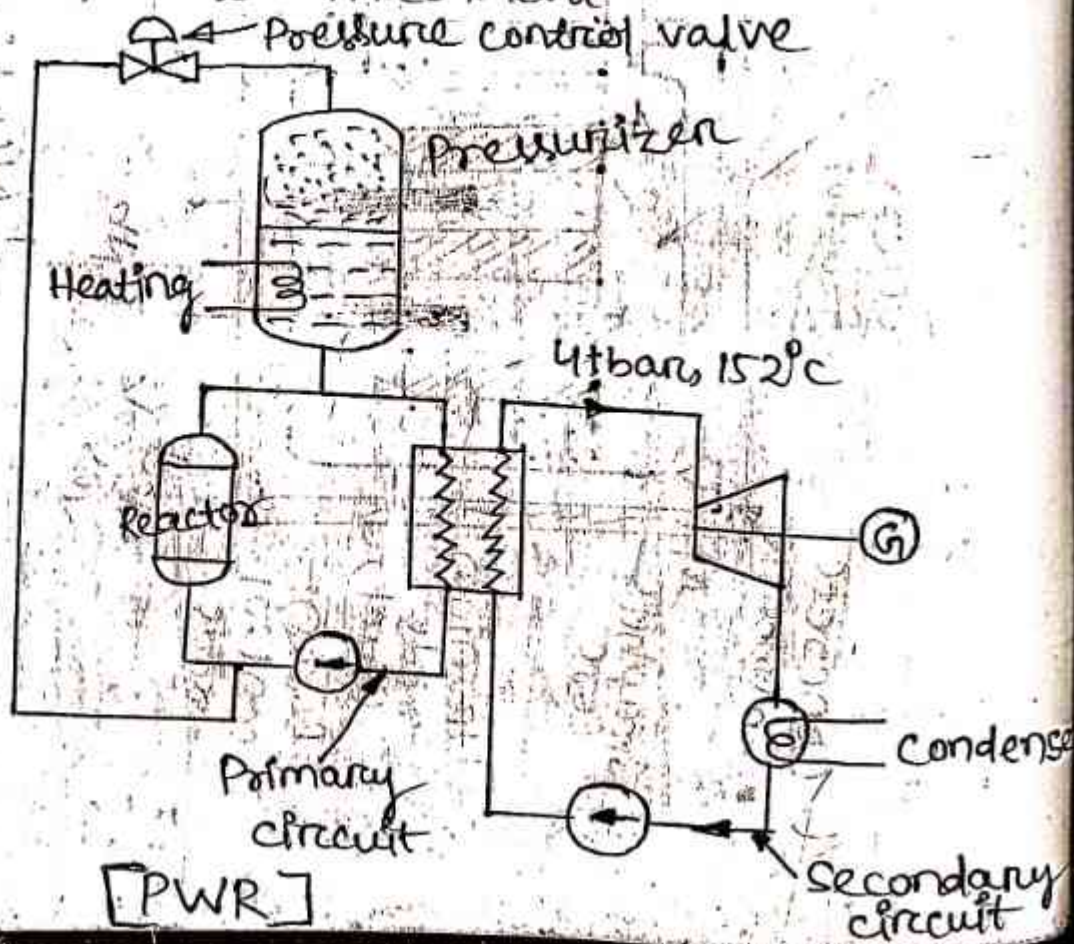 Pressure control valve
Pressurizer
Heating
4+bar, 152°C
Reactor
G
Condense
Primary
circuit
Secondary
circuit
[PWR]